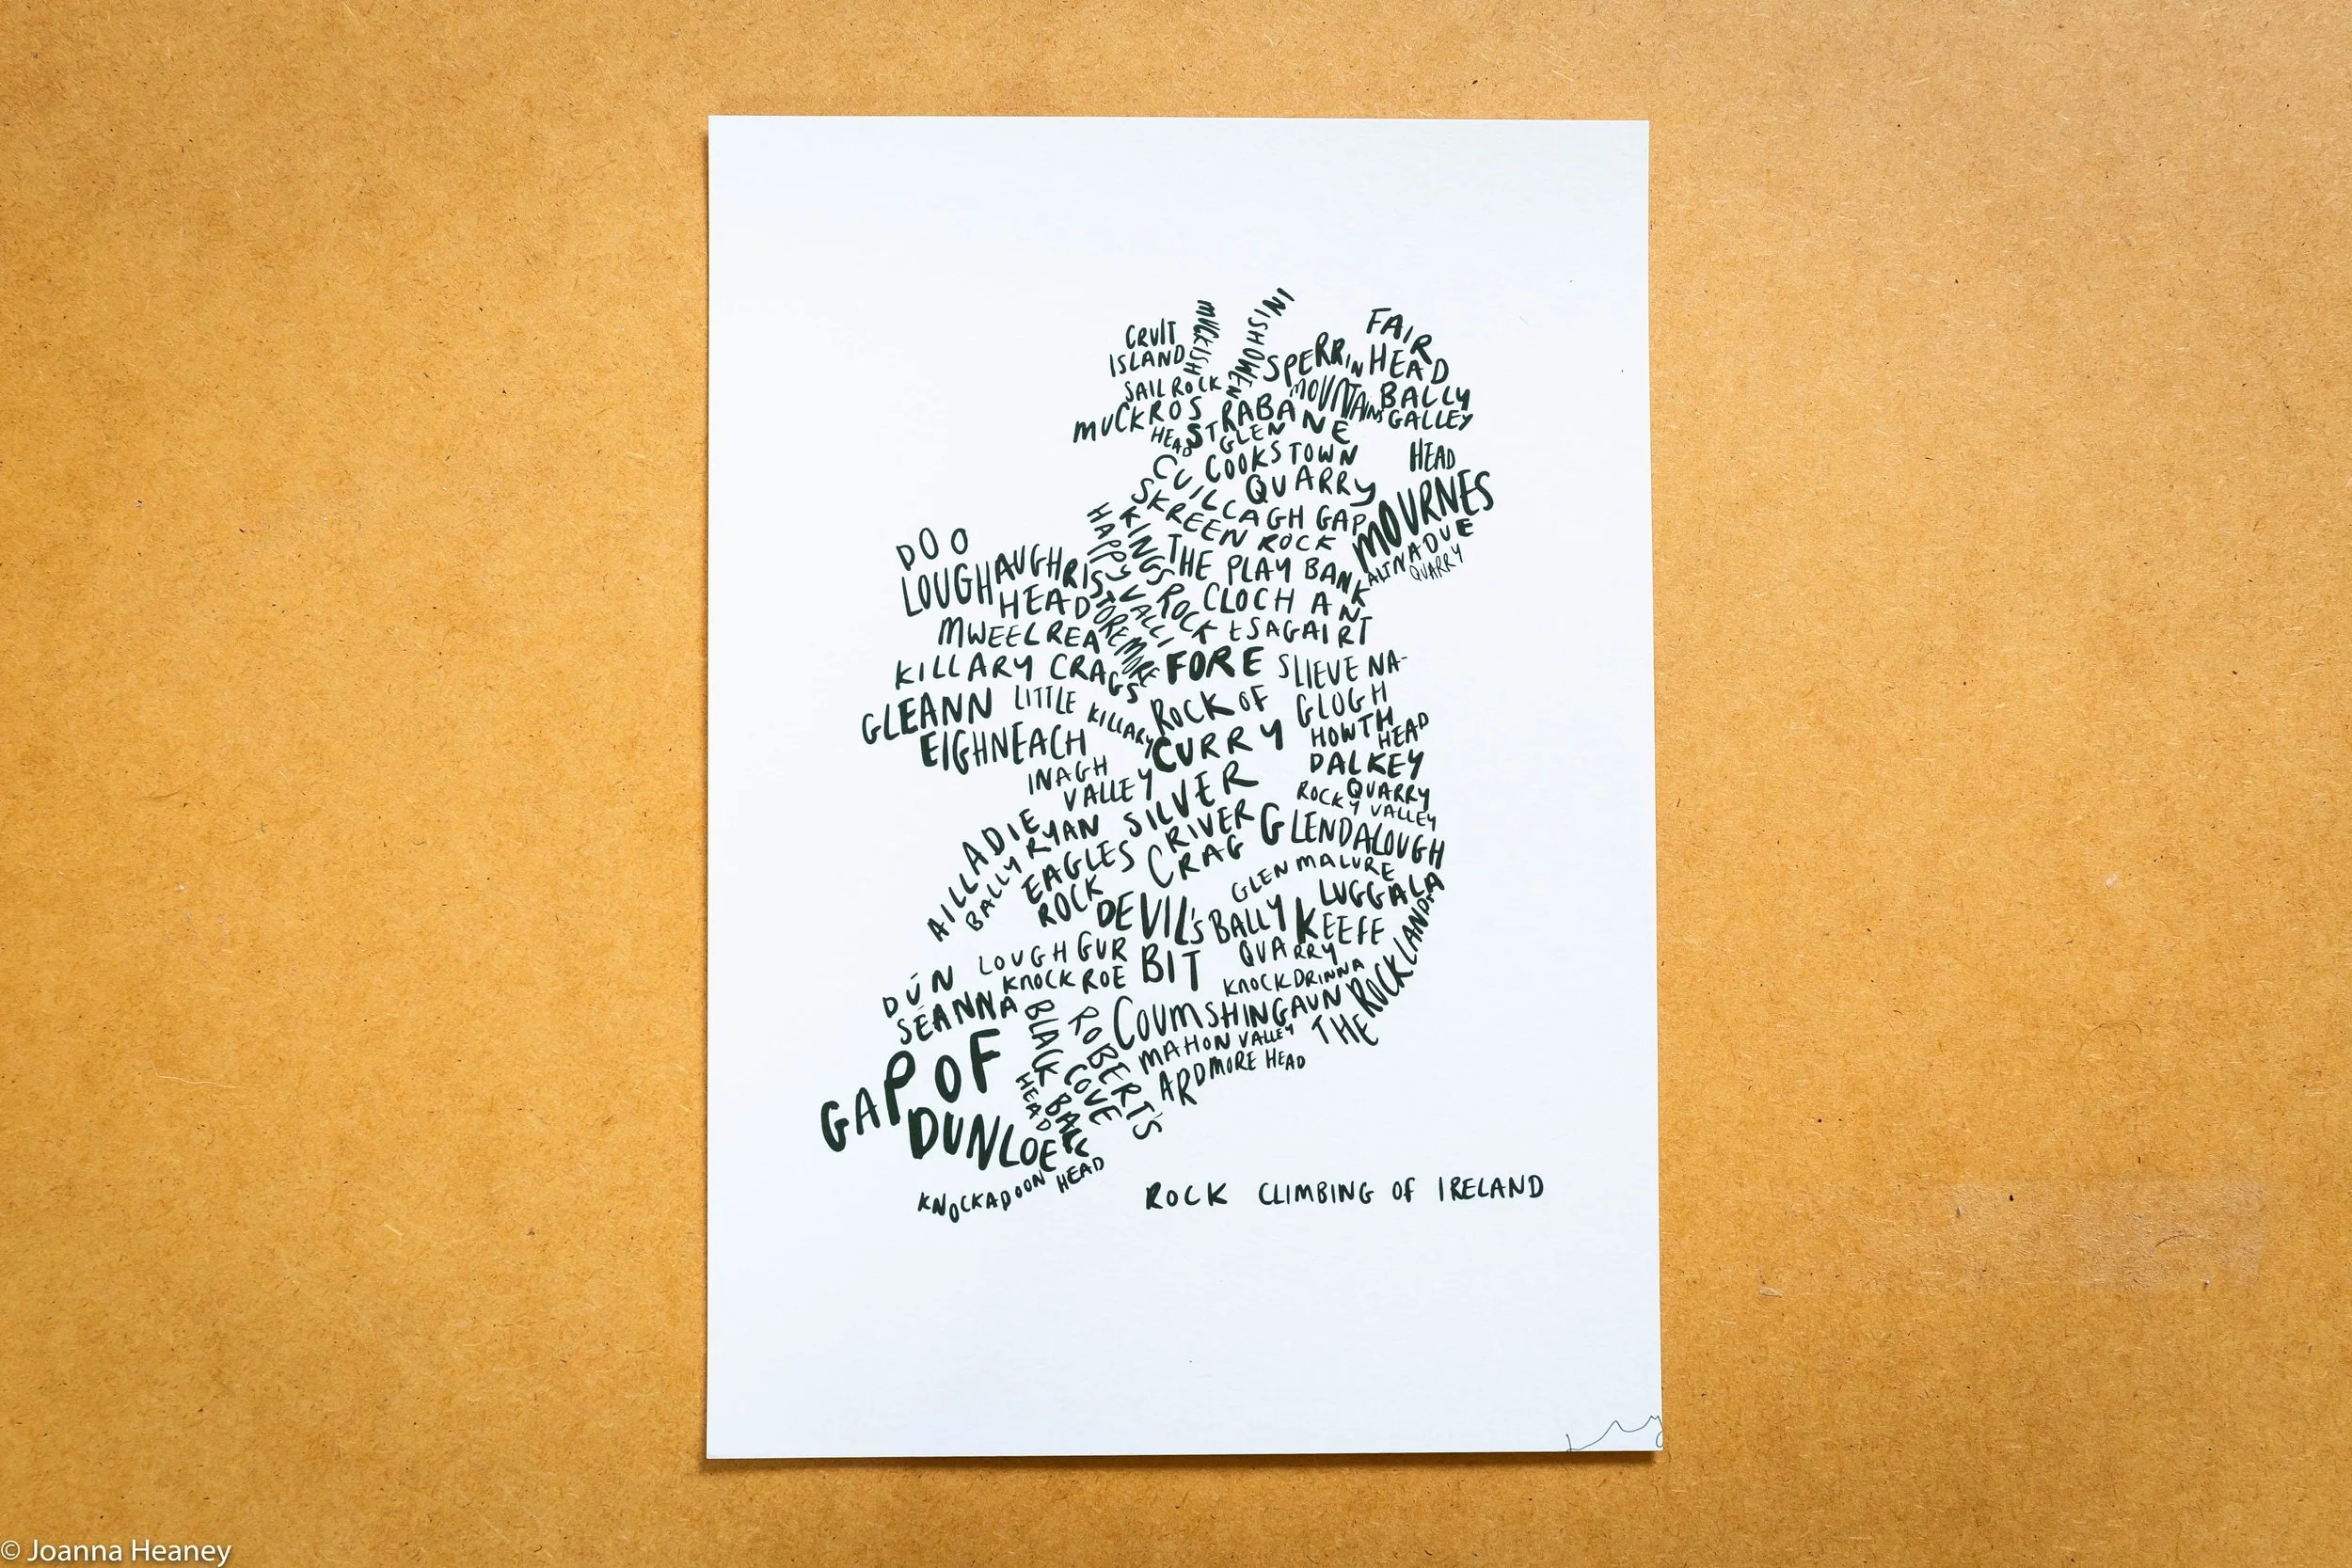 CRUIT
ISLAND
MUCKISH
INISHOWEN
SAIL ROCK
MUCKROS
HEAD
SPERRIN
MOUNTAINS
FAIR
HEAD
BALLY
GALLEY
HEAD
STRABANE
GLEN
COOKSTOWN
QUARRY
CUILCAGH GAP
SKREEN ROCK
MOURNES
ALTNADUE
QUARRY
KINGS ROCK
HAPPY VALLI
THE PLAY BANK
CLOCH AN
tSAGAIRT
DOO
LOUGH
AUGHRIS
HEAD
STOREMORE
MWEELREA
KILLARY CRAGS
FORE
SLIEVE NA-
GLOGH
GLEANN
EIGHNEACH
LITTLE
KILLARY
ROCK OF
CURRY
HOWTH
HEAD
DALKEY
QUARRY
INAGH
VALLEY
ROCKY VALLEY
SILVER
RIVER
CRAG
GLENDALOUGH
AILLADIE
BALLYRYAN
EAGLES
ROCK
GLENMALURE
LUGGALA
DEVIL'S
BIT
BALLYKEEFE
QUARRY
LOUGH GUR
KNOCKROE
KNOCKDRINNA
THE ROCKLANDS
DÚN
SÉANNA
BLACK
HEAD
BALL
HEAD
ROBERT'S
COVE
COUMSHINGAUN
MAHON VALLEY
ARDMORE HEAD
GAP OF
DUNLOE
KNOCKADOON
HEAD
ROCK CLIMBING OF IRELAND
© Joanna Heaney